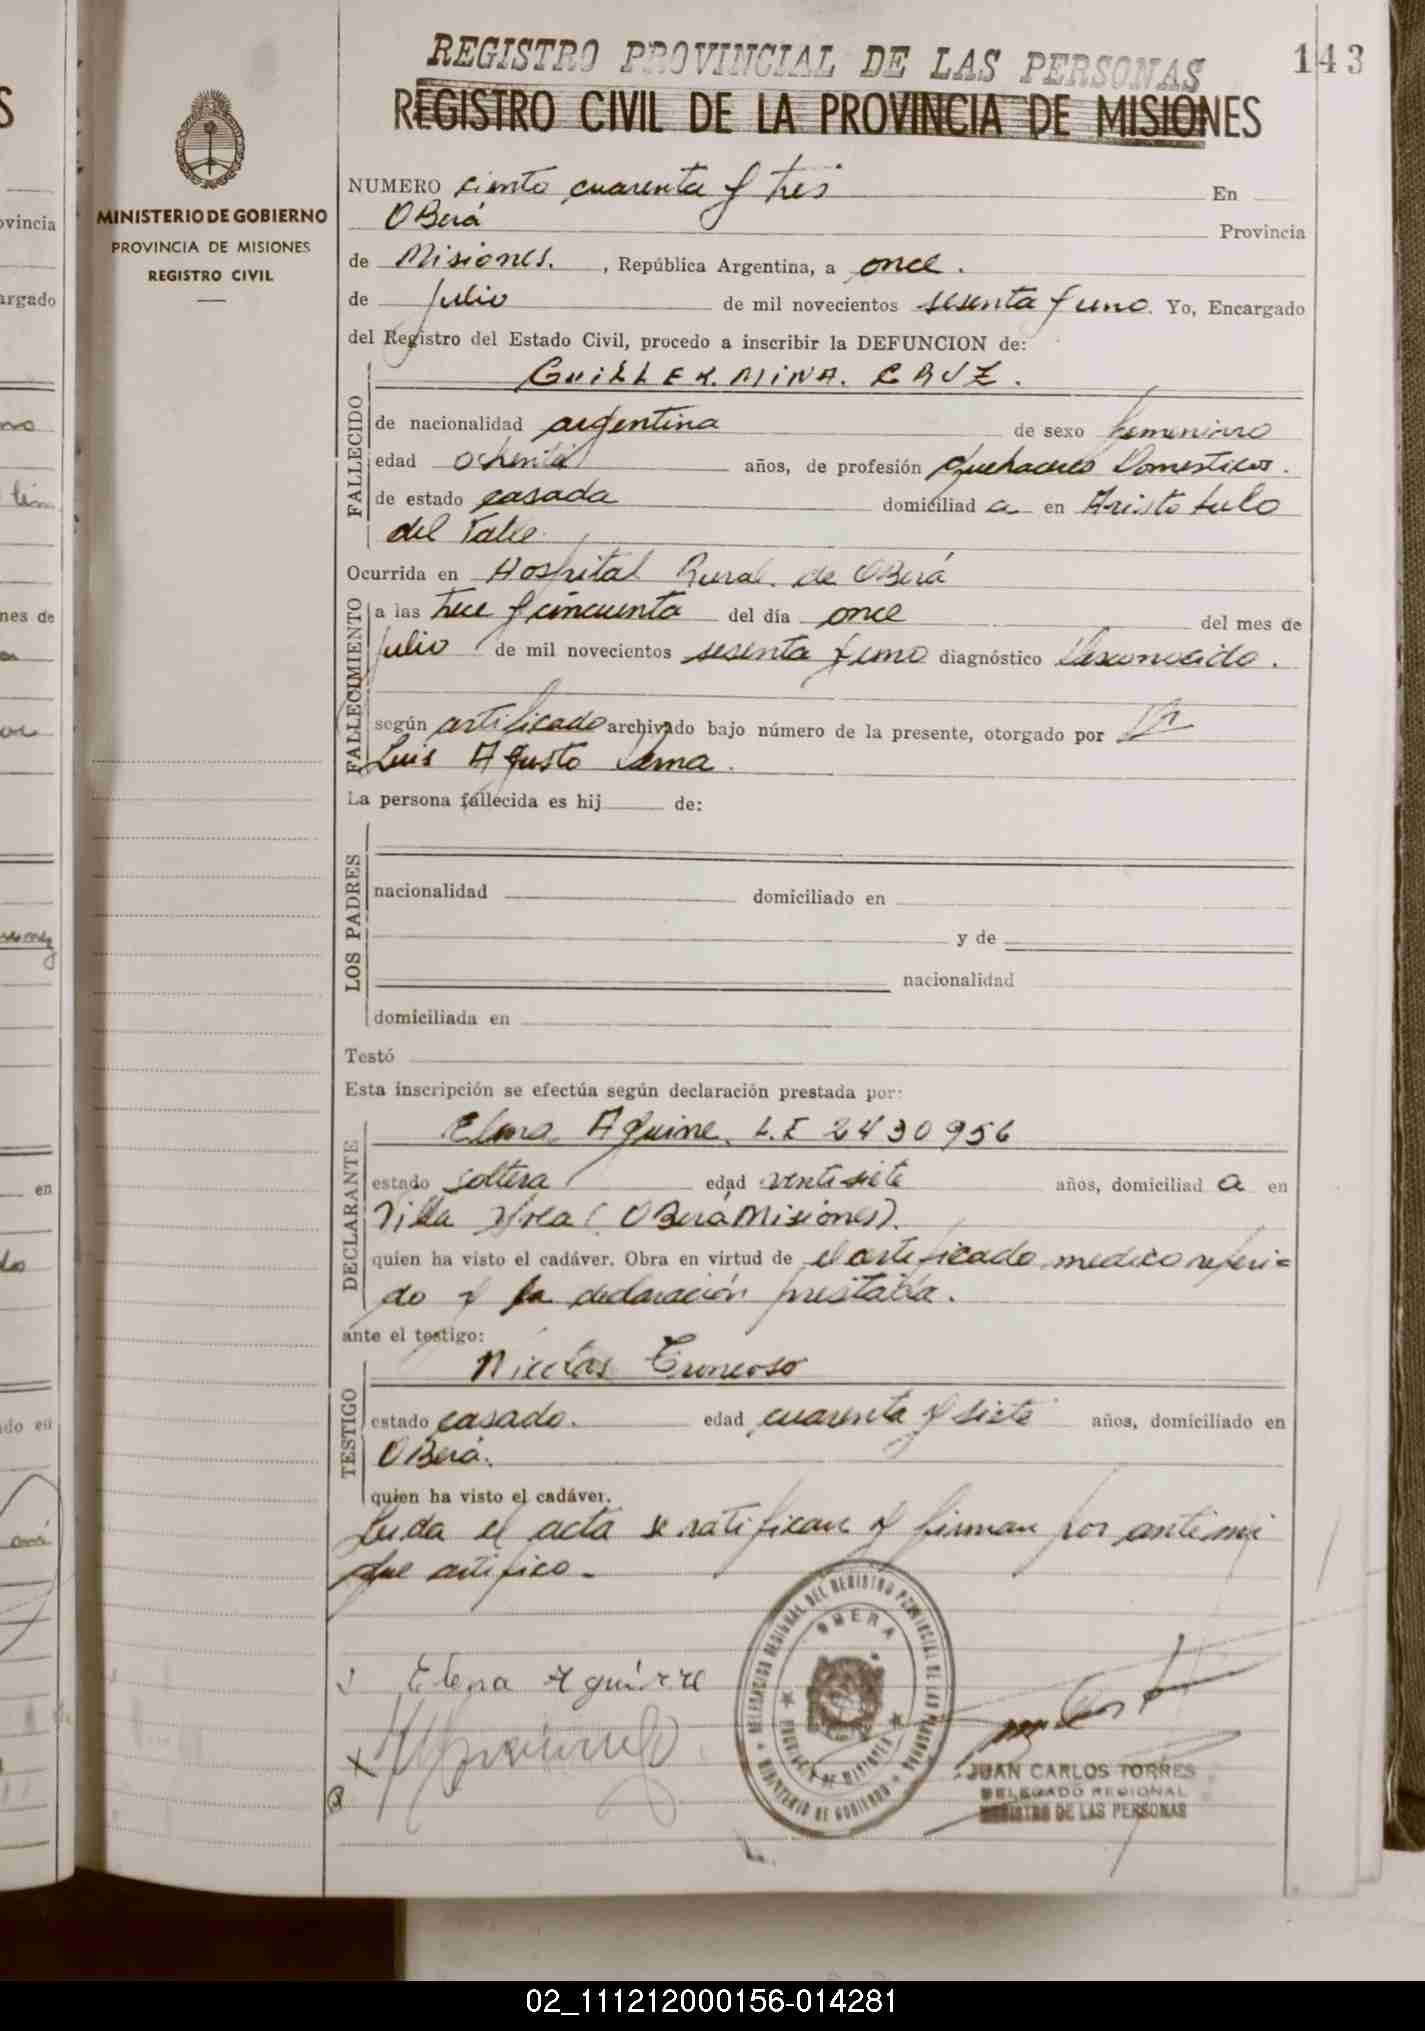 143
REGISTRO PROVINCIAL DE LAS PERSONAS
REGISTRO CIVIL DE LA PROVINCIA DE MISIONES
MINISTERIO DE GOBIERNO
PROVINCIA DE MISIONES
REGISTRO CIVIL
NUMERO ciento cuarenta y tres En
OBerá Provincia
de Misiones. , República Argentina, a once.
de Julio de mil novecientos sesenta y uno. Yo, Encargado
del Registro del Estado Civil, procedo a inscribir la DEFUNCION de:
GUILLERMINA. CRUZ.
FALLECIDO
de nacionalidad argentina de sexo femenino
edad ochenta años, de profesión Quehaceres Domesticos.
de estado casada domiciliad a en Aristobulo
del Valle.
Ocurrida en Hospital Rural de OBerá
FALLECIMIENTO
a las trece y cincuenta del día once del mes de
julio de mil novecientos sesenta y uno diagnóstico Desconocido.
según certificado archivado bajo número de la presente, otorgado por Dr
Luis Agusto
La persona fallecida es hij de:
LOS PADRES
nacionalidad domiciliado en
y de
nacionalidad
domiciliada en
Testó
Esta inscripción se efectúa según declaración prestada por:
DECLARANTE
Elena Aguirre. L.E 2430956
estado soltera edad ventisiete años, domiciliad a en
Villa (OBerá Misiones).
quien ha visto el cadáver. Obra en virtud de el certificado medico referi=
do y la declaración prestada.
ante el testigo:
TESTIGO
Nicolas Troncoso
estado casado. edad cuarenta y siete años, domiciliado en
OBerá.
quien ha visto el cadáver.
Leida el acta se ratifican y firman por antemi
que certifico.-
Elena Aguirre
DELEGACION REGIONAL DEL REGISTRO PROVINCIAL DE LAS PERSONAS
OBERA
PROVINCIA DE MISIONES
MINISTERIO DE GOBIERNO
JUAN CARLOS TORRES
DELEGADO REGIONAL
REGISTRO DE LAS PERSONAS
02_111212000156-014281